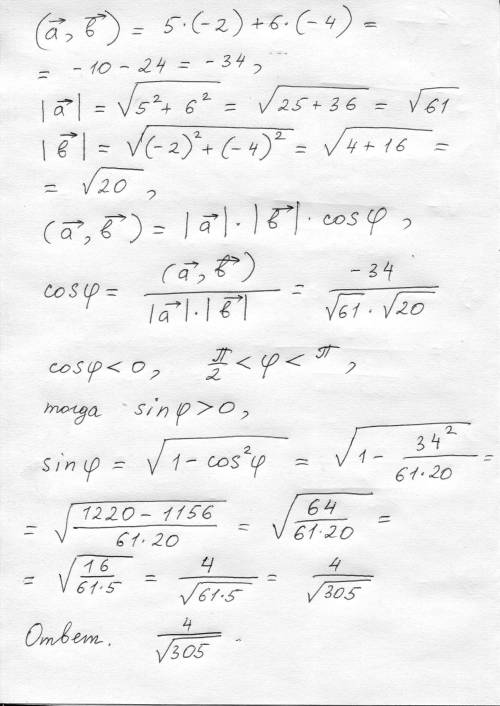 (a⃗, в⃗) = 5·(-2) + 6·(-4) =
= -10 - 24 = -34,
|a⃗| = √(5² + 6²) = √(25 + 36) = √61
|в⃗| = √((-2)² + (-4)²) = √(4 + 16) =
= √20,
(a⃗, в⃗) = |a⃗|·|в⃗|·cosφ,
cosφ = (a⃗, в⃗) / |a⃗|·|в⃗| = -34 / √61·√20
cosφ < 0, π/2 < φ < π,
тогда sinφ > 0,
sinφ = √(1 - cos²φ) = √(1 - 34²/61·20) =
= √(1220 - 1156 / 61·20) = √(64 / 61·20) =
= √(16 / 61·5) = 4/√(61·5) = 4/√305
Ответ. 4/√305.